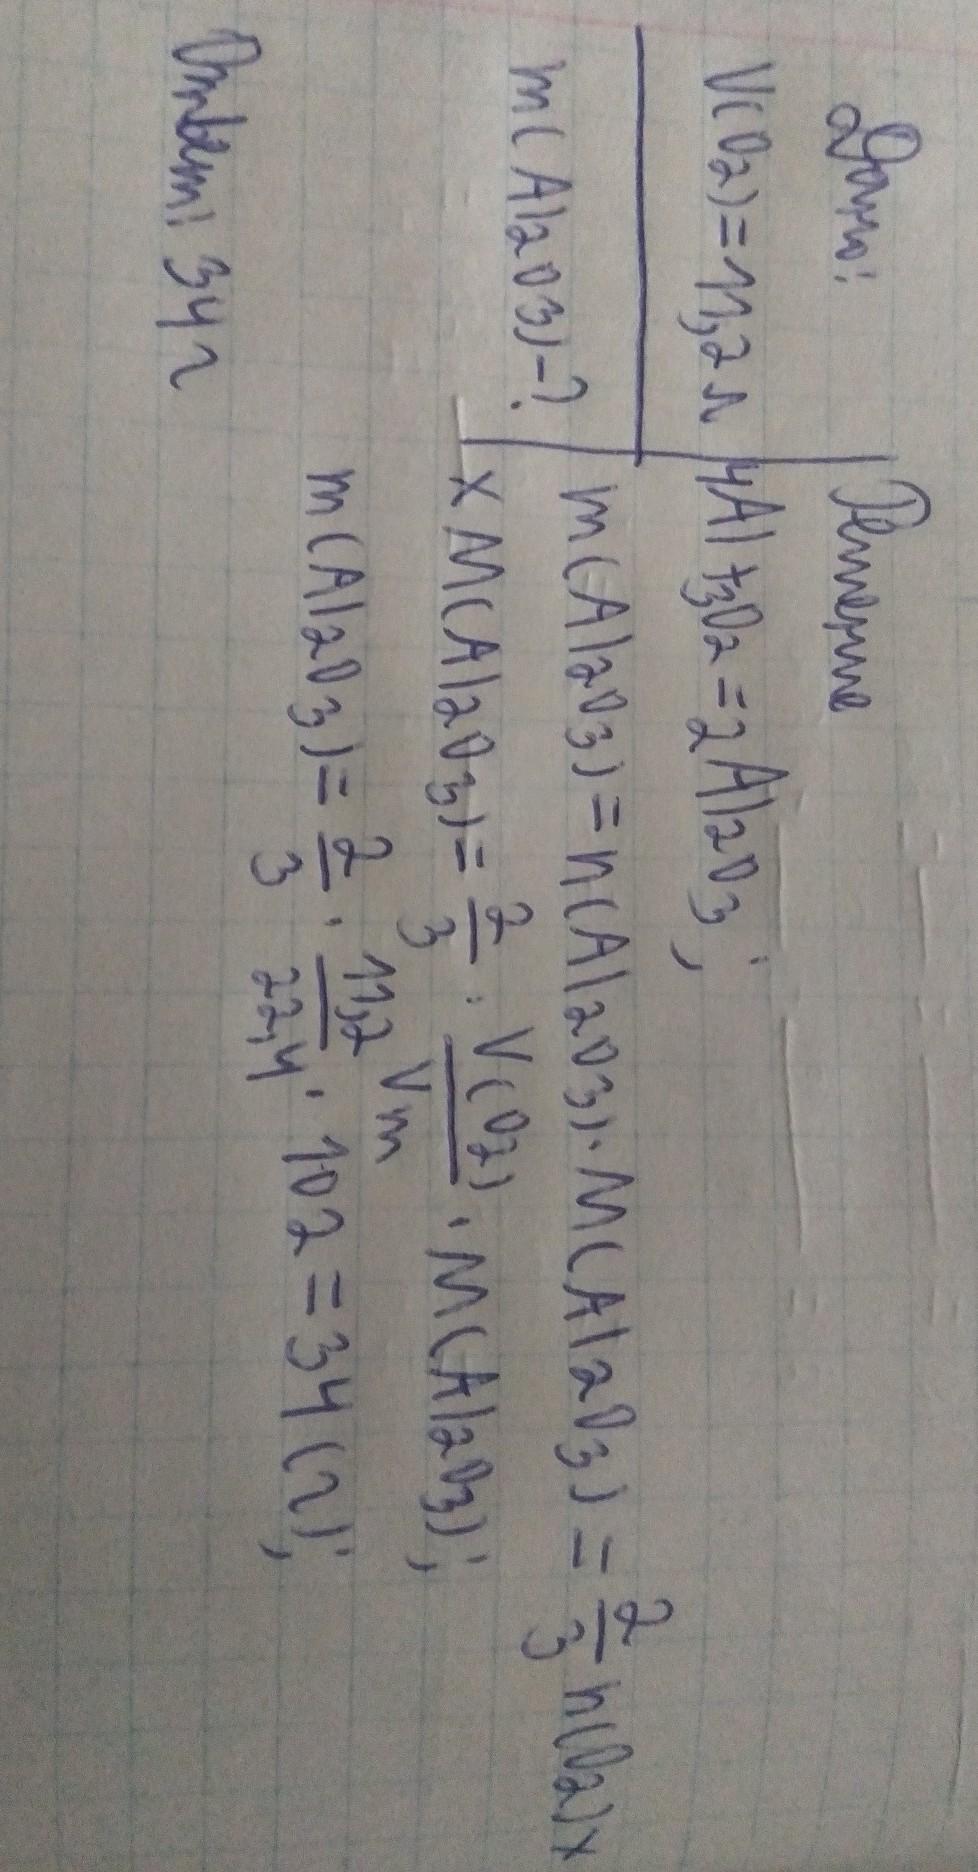 Дано:
V(O2)=11,2 л
m(Al2O3)-?
Решение
4Al+3O2=2Al2O3;
m(Al2O3)=n(Al2O3)·M(Al2O3)=2/3 n(O2)x
xM(Al2O3)=2/3·V(O2)/Vm·M(Al2O3);
m(Al2O3)=2/3·11,2/22,4·102=34(г);
Ответ: 34 г